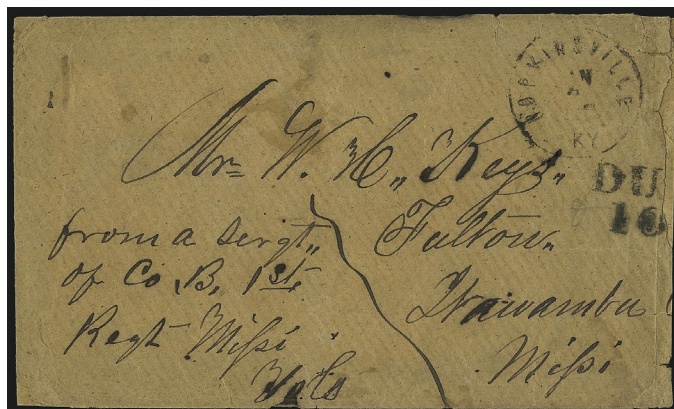 HOPKINSVILLE
KY
DU
10
Mr. W. H. Keys.
Fulton.
Itawamba
Missi
from a Sergt.
of Co. B, 1st.
Regt Missi
Vols